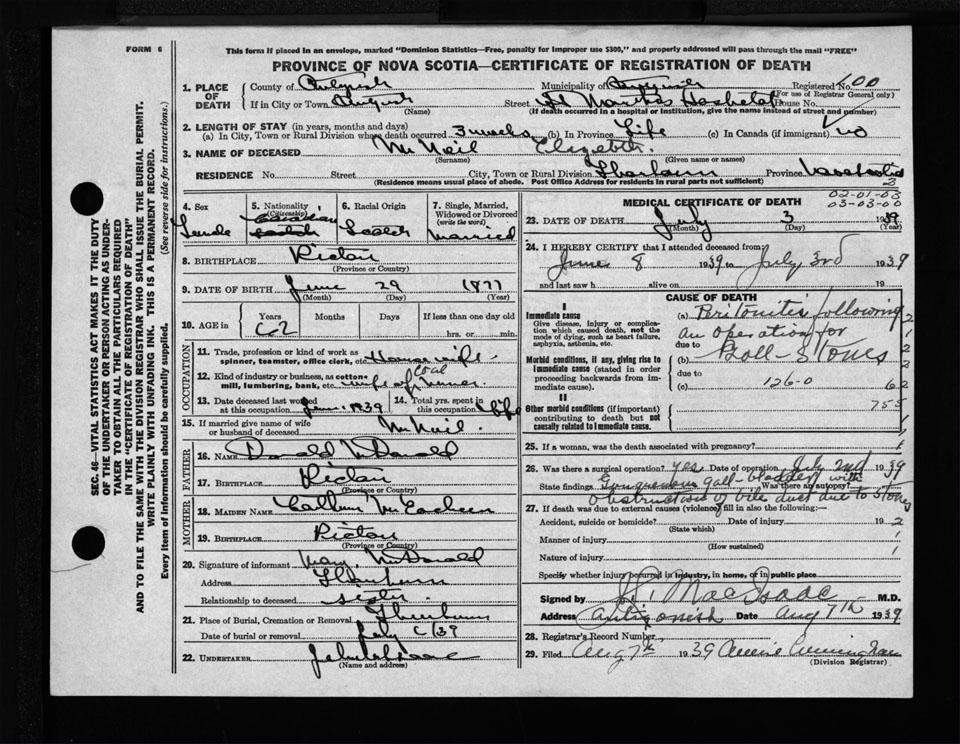 FORM 6
This form if placed in an envelope, marked "Dominion Statistics—Free, penalty for improper use $300," and properly addressed will pass through the mail "FREE"
PROVINCE OF NOVA SCOTIA—CERTIFICATE OF REGISTRATION OF DEATH
SEC. 46—VITAL STATISTICS ACT MAKES IT THE DUTY
OF THE UNDERTAKER OR PERSON ACTING AS UNDER-
TAKER TO OBTAIN ALL THE PARTICULARS REQUIRED
IN THE "CERTIFICATE OF REGISTRATION OF DEATH"
AND TO FILE THE SAME WITH THE DIVISION REGISTRAR WHO SHALL ISSUE THE BURIAL PERMIT.
WRITE PLAINLY WITH UNFADING INK. THIS IS A PERMANENT RECORD.
Every item of information should be carefully supplied. (See reverse side for instructions.)
1. PLACE OF DEATH
County of Municipality of Registered No. 100
(For use of Registrar General only)
If in City or Town Street St Marthas House No.
(Name) (If death occurred in a hospital or institution, give the name instead of street and number)
2. LENGTH OF STAY (in years, months and days)
(a) In City, Town or Rural Division where death occurred 3 weeks (b) In Province Life (c) In Canada (if immigrant) no
3. NAME OF DECEASED McNeil Elizabeth.
(Surname) (Given name or names)
RESIDENCE No. Street City, Town or Rural Division Thorburn Province Nova Scotia
(Residence means usual place of abode. Post Office Address for residents in rural parts not sufficient)
3
4. Sex
5. Nationality (Citizenship) Canadian
6. Racial Origin Scotch
7. Single, Married, Widowed or Divorced (write the word) Married
8. BIRTHPLACE Pictou
(Province or Country)
9. DATE OF BIRTH June 29 1877
(Month) (Day) (Year)
10. AGE in Years Months Days If less than one day old
62 hrs. or min.
OCCUPATION
11. Trade, profession or kind of work as spinner, teamster, office clerk, etc. Housewife
12. Kind of industry or business, as cotton mill, lumbering, bank, etc. wife of coal miner.
13. Date deceased last worked at this occupation June 1939
14. Total yrs. spent in this occupation Life
15. If married give name of wife or husband of deceased McNeil.
FATHER
16. NAME Donald McDonald
17. BIRTHPLACE Pictou
(Province or Country)
MOTHER
18. MAIDEN NAME McEachern
19. BIRTHPLACE Pictou
(Province or Country)
20. Signature of informant Mary McDonald
Address Thorburn
Relationship to deceased sister
21. Place of Burial, Cremation or Removal Thorburn
Date of burial or removal July 6/39
22. UNDERTAKER
(Name and address)
MEDICAL CERTIFICATE OF DEATH
02-01-03
03-03-00
23. DATE OF DEATH July 3 1939
(Month) (Day) (Year)
24. I HEREBY CERTIFY that I attended deceased from
June 8 1939 to July 3rd 1939
and last saw h alive on 19
CAUSE OF DEATH
I
Immediate cause
Give disease, injury or complication which caused death, not the mode of dying, such as heart failure, asphyxia, asthenia, etc.
Morbid conditions, if any, giving rise to immediate cause (stated in order proceeding backwards from immediate cause).
II
Other morbid conditions (if important) contributing to death but not causally related to immediate cause.
(a) Peritonitis following
an operation for
due to
(b) Gall-Stones
due to
(c) 126-0 62
755
25. If a woman, was the death associated with pregnancy?
26. Was there a surgical operation? Yes Date of operation July 2nd 1939
State findings Gangrenous gall-bladder with Was there an autopsy?
obstruction of bile duct due to stones
27. If death was due to external causes (violence) fill in also the following:—
Accident, suicide or homicide? Date of injury 19
(State which)
Manner of injury
(How sustained)
Nature of injury
Specify whether injury occurred in industry, in home, or in public place
Signed by MacIsaac M.D.
Address Antigonish Date Aug 7th 1939
28. Registrar's Record Number
29. Filed Aug 7th 1939 Annie Cunningham
(Division Registrar)